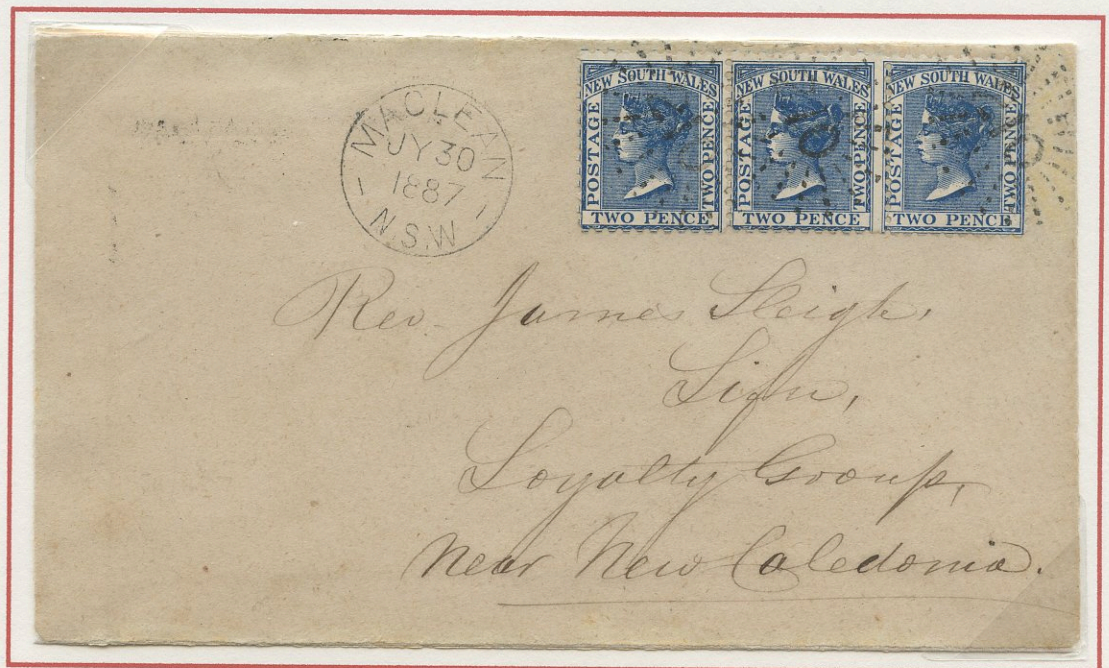 MACLEAN
JY 30
1887
N.S.W
NEW SOUTH WALES
POSTAGE
TWO PENCE
TWO PENCE
NEW SOUTH WALES
POSTAGE
TWO PENCE
TWO PENCE
NEW SOUTH WALES
POSTAGE
TWO PENCE
TWO PENCE
Rev. James Sleigh,
Lifu,
Loyalty Group,
Near New Caledonia.